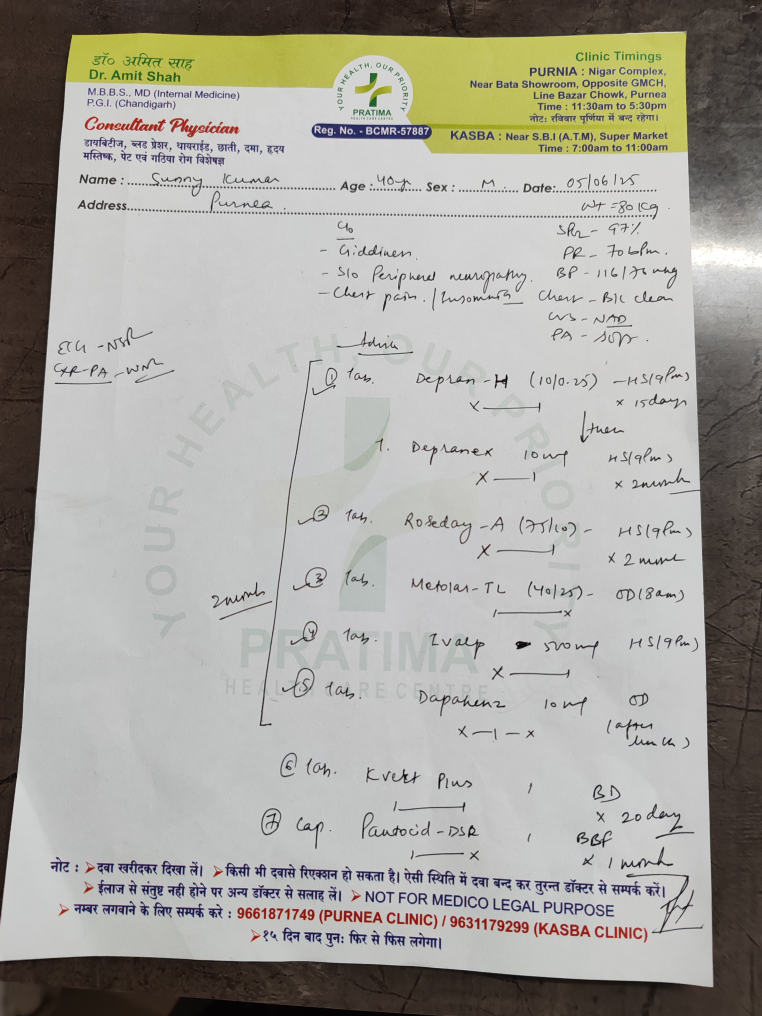 डॉ० अमित साह
Dr. Amit Shah
M.B.B.S., MD (Internal Medicine)
P.G.I. (Chandigarh)
Consultant Physician
डायबिटीज, ब्लड प्रेशर, थायराईड, छाती, दमा, हृदय
मस्तिष्क, पेट एवं गठिया रोग विशेषज्ञ
YOUR HEALTH, OUR PRIORITY
PRATIMA
HEALTH CARE CENTRE
Reg. No. - BCMR-57887
Clinic Timings
PURNIA : Nigar Complex,
Near Bata Showroom, Opposite GMCH,
Line Bazar Chowk, Purnea
Time : 11:30am to 5:30pm
नोट: रविवार पूर्णिया में बन्द रहेगा।
KASBA : Near S.B.I (A.T.M), Super Market
Time : 7:00am to 11:00am
Name : Sunny Kumar Age : 40 yr Sex : M Date: 05/06/25
Address Purnea Wt = 80 kg
C/o
- Giddiness.
- S/o Peripheral neuropathy.
- Chest pain. / Insomnia
SPO2 - 97%
PR - 70 bpm.
BP - 116/76 mmHg
Chest - B/L clear
CVS - NAD
PA - Soft.
ECG - NSR
CXR-PA - WNL
Advice
YOUR HEALTH, OUR PRIORITY
PRATIMA
HEALTH CARE CENTRE
① Tab. Depran-H (10/0.25) - HS (9pm)
x—| x 15 days
↓ then
T. Depranex 10 mg HS (9pm)
x—| x 2 month
② Tab. Roseday-A (75/10) - HS (9pm)
x—| x 2 month
③ Tab. Metolar-TL (40/25) - OD (8am)
|—x
2 month
④ Tab. 500 mg HS (9pm)
x—|
⑤ Tab. 10 mg OD
x—|—x (after lunch)
⑥ Tab. Plus 1 BD
|—| x 20 day
⑦ Cap. Pantocid-DSR 1 BBF
|—x x 1 month
नोट : ➤दवा खरीदकर दिखा लें। ➤किसी भी दवासे रिएक्शन हो सकता है। ऐसी स्थिति में दवा बन्द कर तुरन्त डॉक्टर से सम्पर्क करें।
➤ईलाज से संतुष्ट नही होने पर अन्य डॉक्टर से सलाह लें। ➤NOT FOR MEDICO LEGAL PURPOSE
➤नम्बर लगवाने के लिए सम्पर्क करे : 9661871749 (PURNEA CLINIC) / 9631179299 (KASBA CLINIC)
➤१५ दिन बाद पुनः फिर से फिस लगेगा।